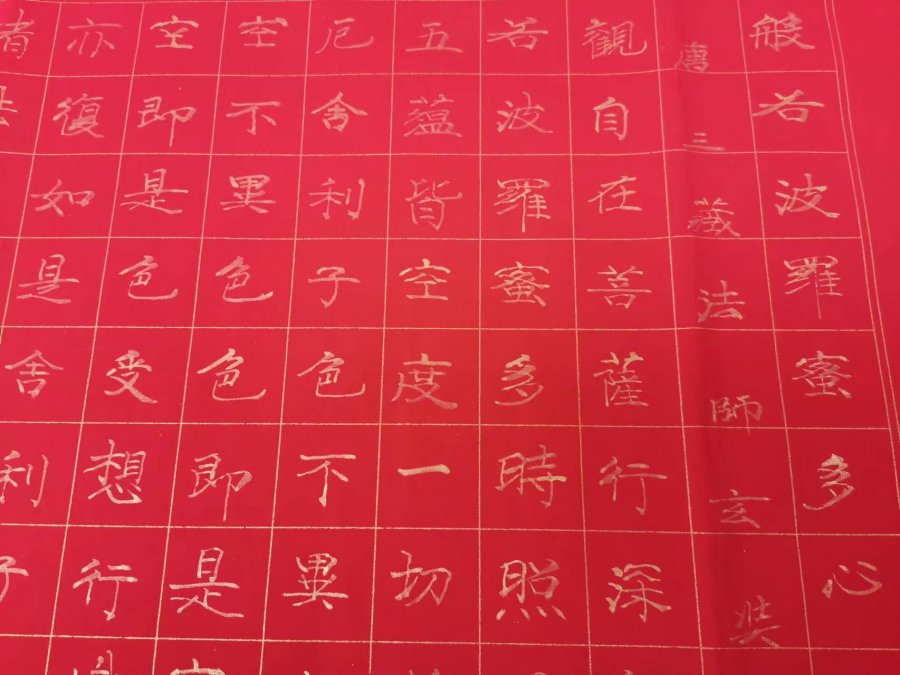 般若波羅蜜多心
唐三藏法師玄奘
觀自在菩薩行深
若波羅蜜多時照
五蘊皆空度一切
厄舍利子色不異
空不異色色即是空
空即是色受想行
亦復如是舍利子